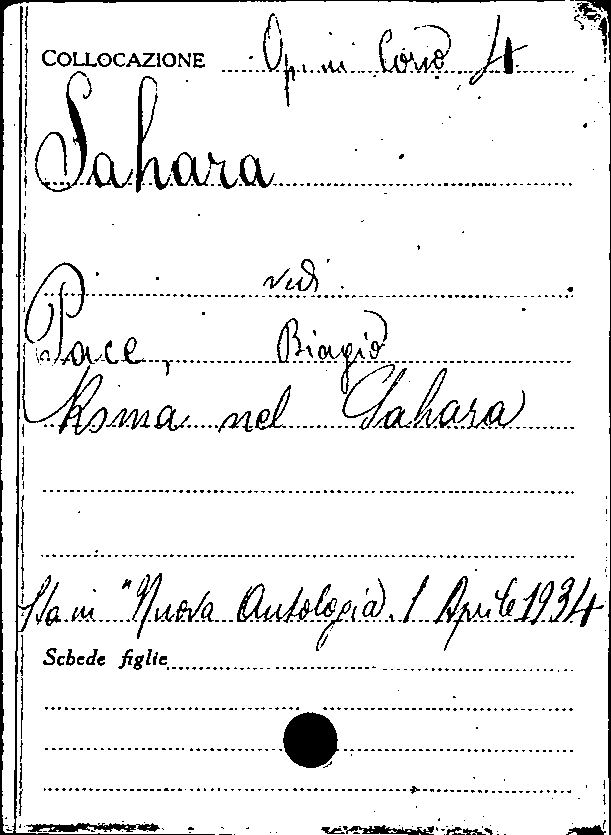 COLLOCAZIONE Op. in Corso 4
Sahara
vedi
Pace, Biagio
Roma nel Sahara
Sta in "Nuova Antologia. 1 Aprile 1934
Schede figlie